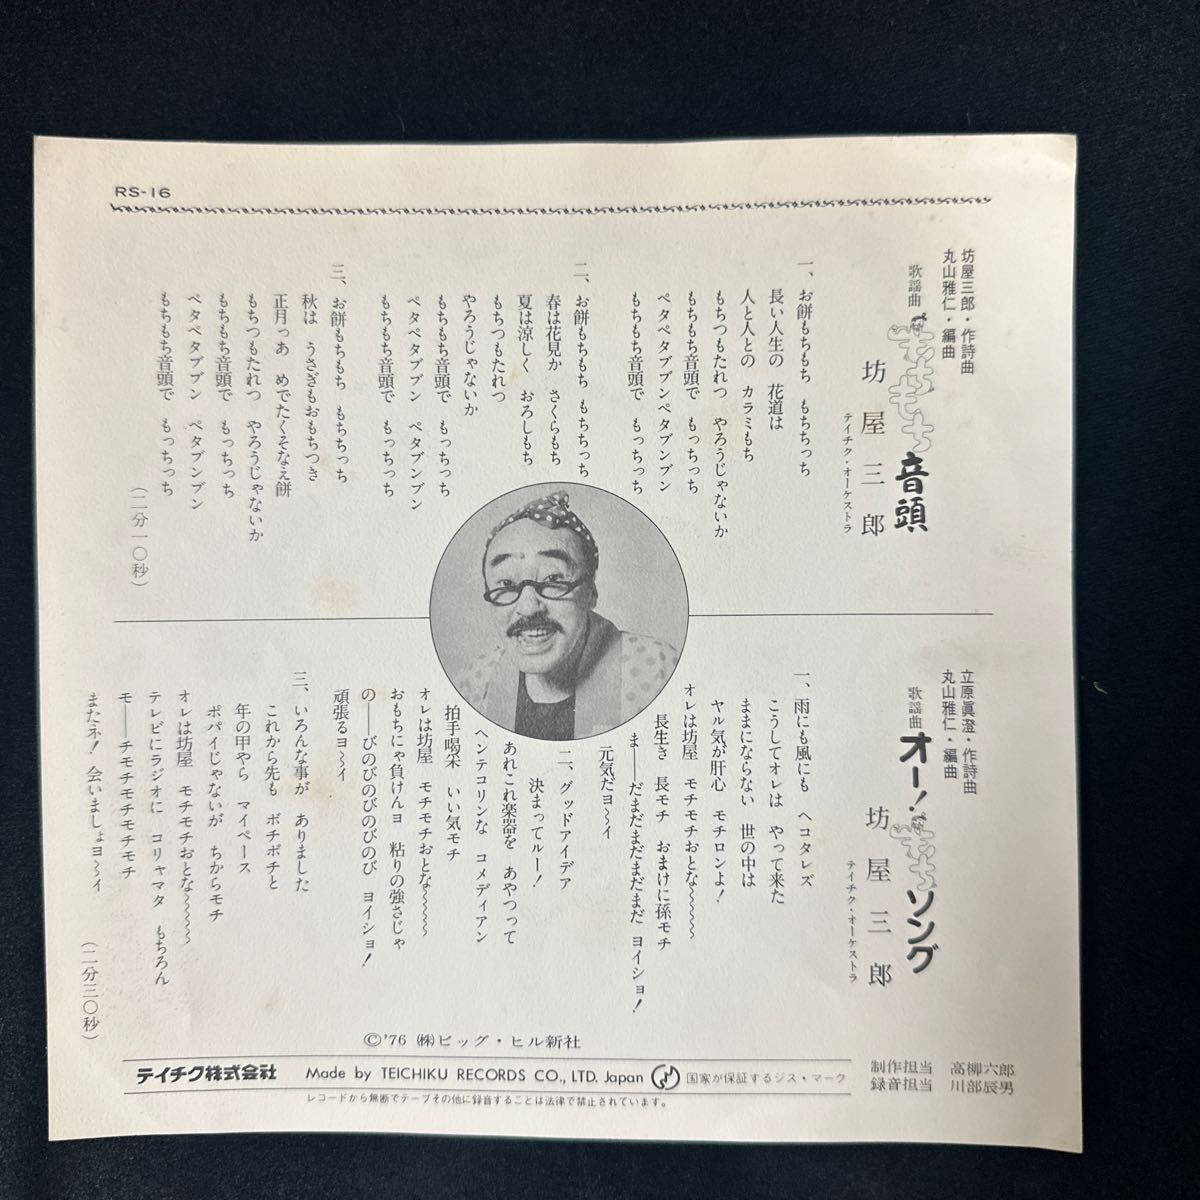 RS-16
坊屋三郎・作詩曲
丸山雅仁・編曲
歌謡曲 もちもち音頭
坊屋三郎
テイチク・オーケストラ
一、お餅もちもち もちちっち
長い人生の 花道は
人と人との カラミもち
もちつもたれつ やろうじゃないか
もちもち音頭で もっちっち
ペタペタブブンペタブンブン
もちもち音頭で もっちっち
二、お餅もちもち もちちっち
春は花見か さくらもち
夏は涼しく おろしもち
もちつもたれつ
やろうじゃないか
もちもち音頭で もっちっち
ペタペタブブン ペタブンブン
もちもち音頭で もっちっち
三、お餅もちもち もちちっち
秋は うさぎもおもちつき
正月っあ めでたくそなえ餅
もちつもたれつ やろうじゃないか
もちもち音頭で もっちっち
ペタペタブブン ペタブンブン
もちもち音頭で もっちっち
(二分一〇秒)
立原眞澄・作詩曲
丸山雅仁・編曲
歌謡曲 オー!もちもちソング
坊屋三郎
テイチク・オーケストラ
一、雨にも風にも ヘコタレズ
こうしてオレは やって来た
ままにならない 世の中は
ヤル気が肝心 モチロンよ!
オレは坊屋 モチモチおとな〜〜〜〜
長生き 長モチ おまけに孫モチ
ま——だまだまだまだまだ ヨイショ!
元気だヨ〜イ
二、グッドアイデア
決まってルー!
あれこれ楽器を あやつって
ヘンテコリンな コメディアン
拍手喝采 いい気モチ
オレは坊屋 モチモチおとな〜〜〜〜
おもちにゃ負けんヨ 粘りの強さじゃ
の——びのびのびのびのび ヨイショ!
頑張るヨ〜イ
三、いろんな事が ありました
これから先も ボチボチと
年の甲やら マイペース
ポパイじゃないが ちからモチ
オレは坊屋 モチモチおとな〜〜〜〜
テレビにラジオに コリャマタ もちろん
モ——チモチモチモチモチ
またネ! 会いましょヨ〜イ
(二分三〇秒)
©'76 ㈱ビッグ・ヒル新社
テイチク株式会社 Made by TEICHIKU RECORDS CO., LTD. Japan 国家が保証するジス・マーク
レコードから無断でテープその他に録音することは法律で禁止されています。
制作担当 高柳六郎
録音担当 川部辰男